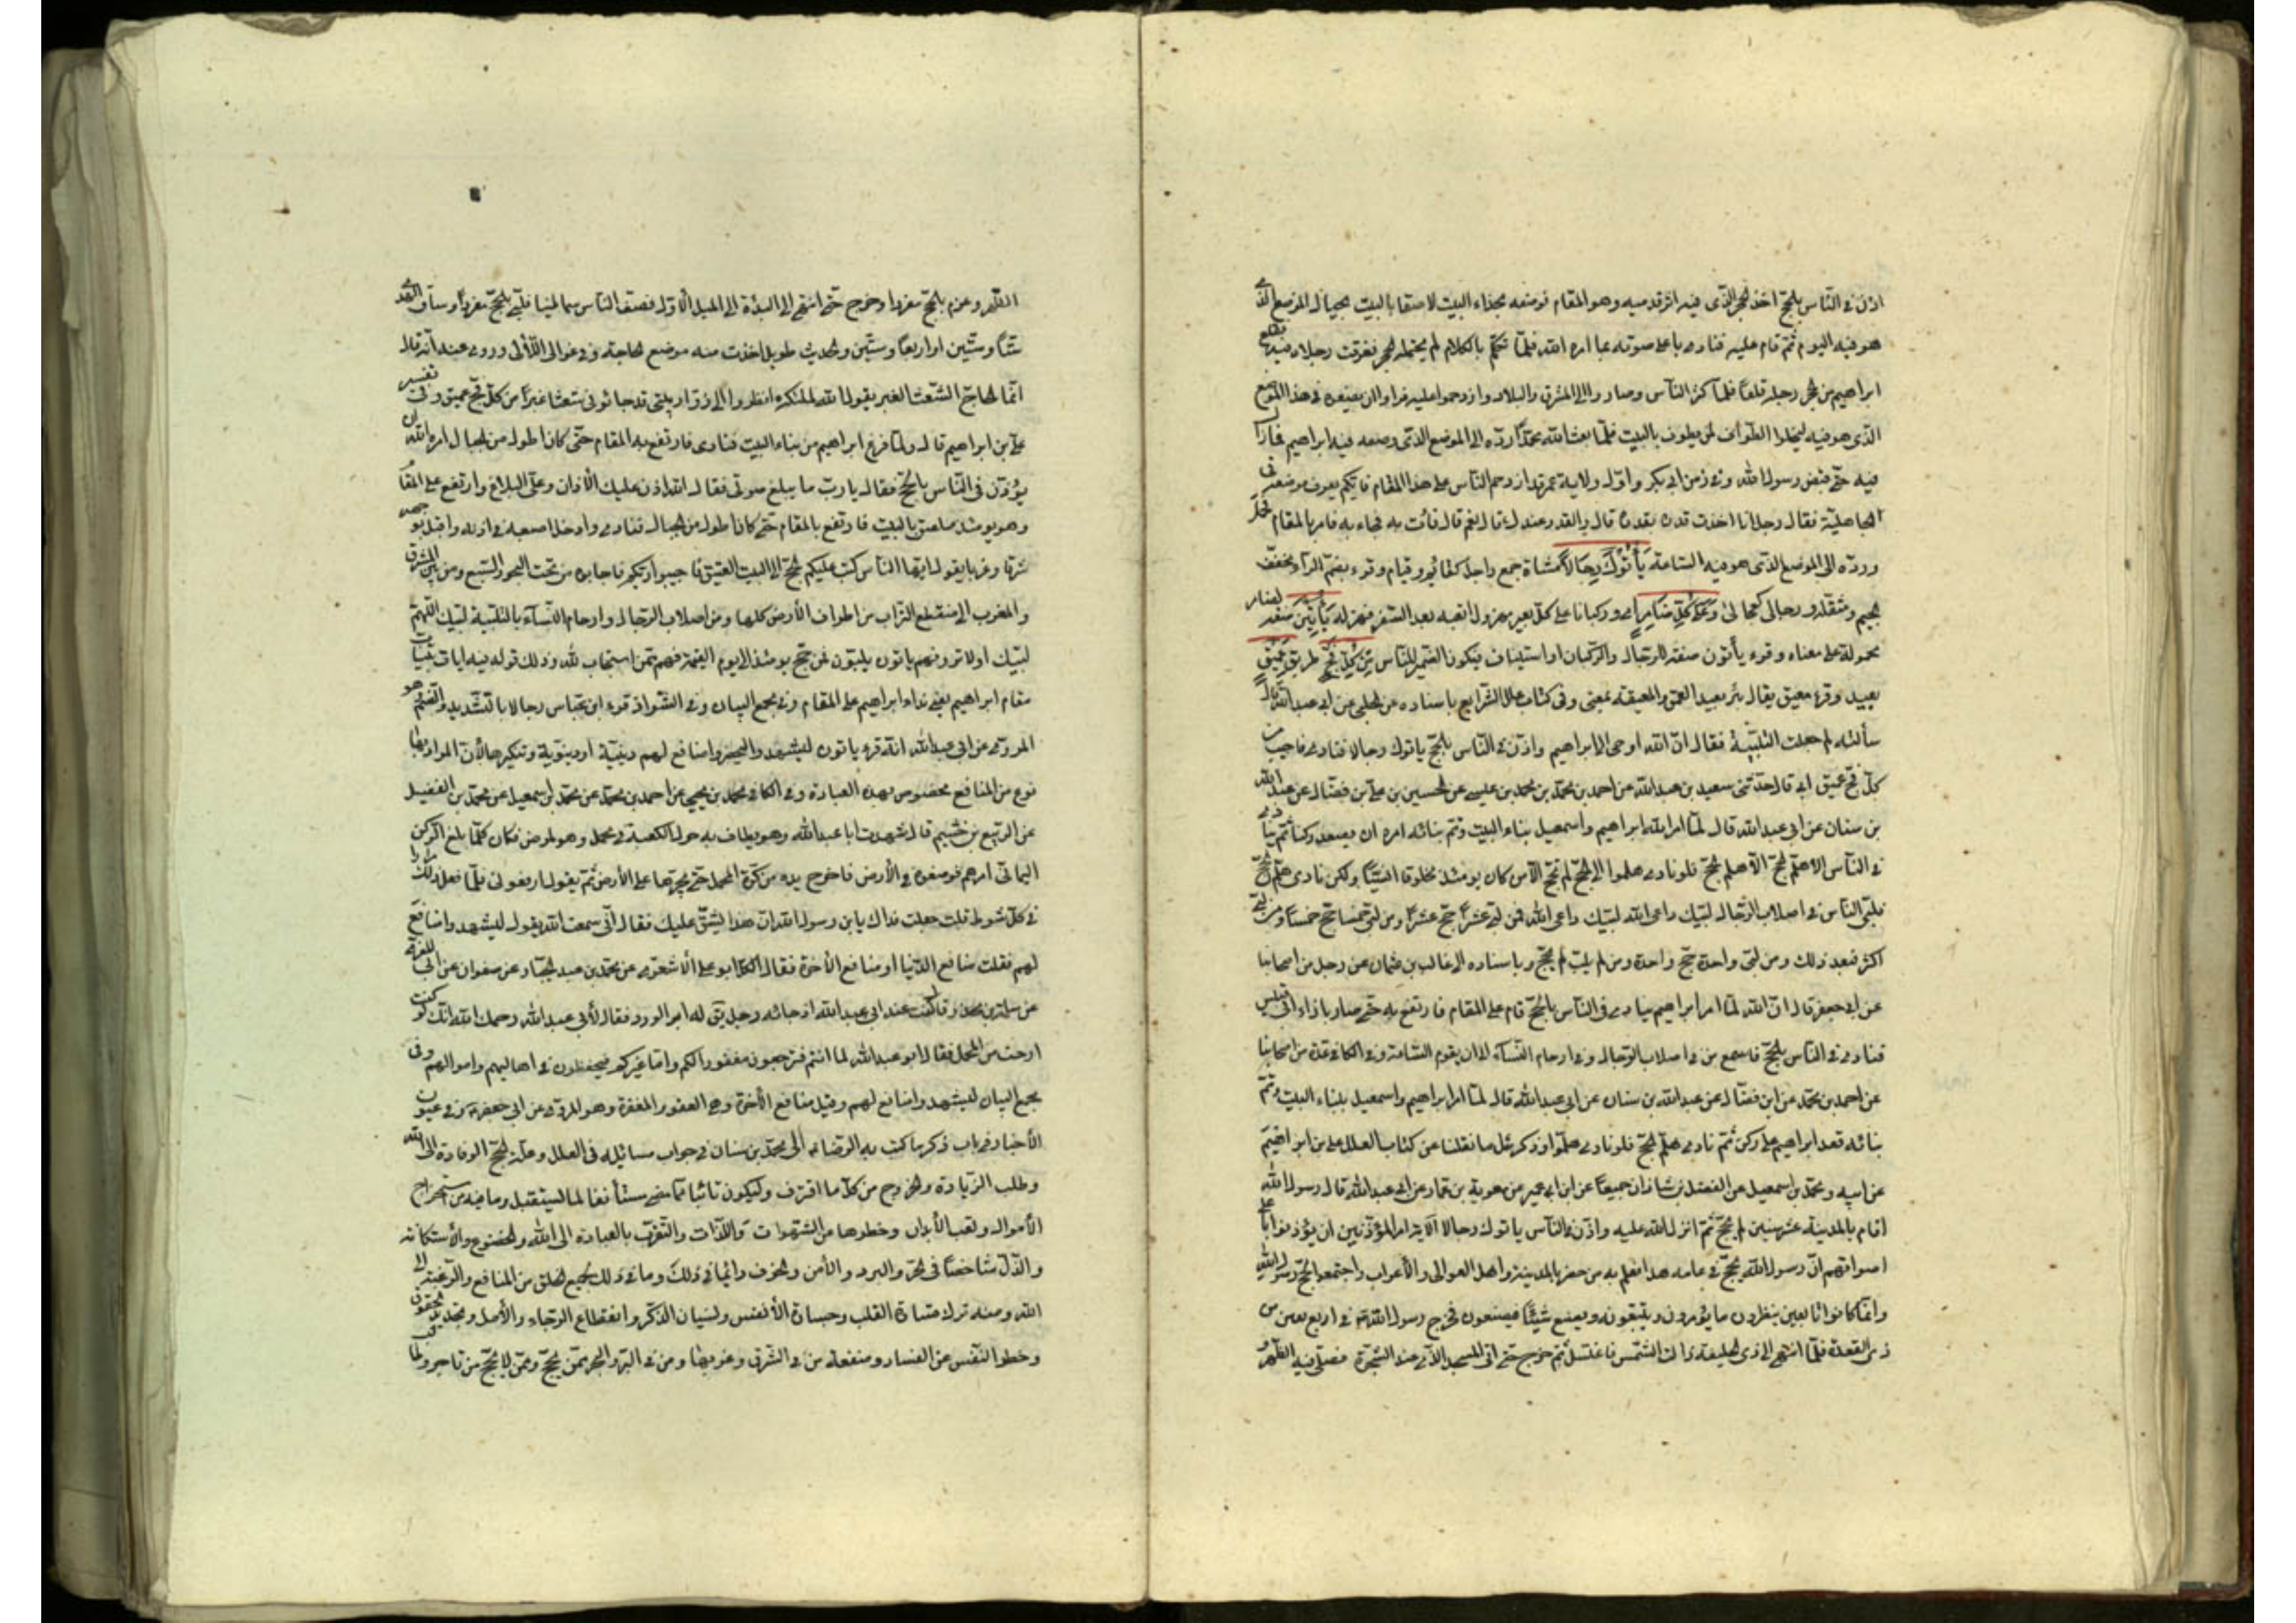 اذن فى النّاس بالحج اخذ الحجر الّذى فيه اثر قدميه وهو المقام فوضعه بحذاء البيت لاصقا بالبيت بحيال الموضع الّذى
هو فيه اليوم ثمّ قام عليه فنادى باعلى صوته بما امره الله فلمّا تكلّم بالكلام لم يحتمله الحجر فغرقت رجلاه فيه فقلع
ابراهيم من الحجر رجليه قلعًا فلمّا كثر النّاس وصاروا الى الشرّ والبلاء وازدحموا عليه فراوا ان يضعوه فى هذا الموضع
الذى هو فيه ليخلوا الطّواف لمن يطوف بالبيت فلمّا بعث الله محمّدًا ردّه الى الموضع الذى وضعه فيه ابراهيم فما زال
فيه حتّى قبض رسول الله وفى زمن ابى بكر واوّل ولاية عمر ثم قد ازدحم الناس على هذا المقام فايّكم يعرف موضعه فى
الجاهليّة فقال رجل انا اخذت قدره بقدّ قال والقد عندك قال نعم قال فأت به فجاء به فامر بالمقام فحمل
وردّه الى الموضع الذى هو فيه السّاعة يَأْتُوكَ رِجَالاً مشاة جمع راجل كقائم وقيام وقرء بضمّ الرّاء مخفّف
الجيم ومثقله ورجالى كعجالى وَعَلى كُلِّ ضَامِرٍ اى وركبانا على كلّ بعير مهزول اتعبه بعد السّفر فهزله يَأْتِينَ صفة لضامر
محمولة على معناه وقرء يأتون صفة للرّجال والرّكبان او استيناف فيكون الضّمير للنّاس مِنْ كُلِّ فَجٍّ طريق عَمِيقٍ
بعيد وقرء معيق يقال بئر بعيد العمق والمعيقه بمعنى وفى كتاب علل الشّرايع باسناده عن الحلبى عن ابى عبد الله قال
سألته لم جعلت التّلبية فقال انّ الله اوحى الى ابراهيم واذّن فى النّاس بالحج ياتوك رجالا فنادى فاجيب من
كلّ فجّ عميق ابى قال حدّثنى سعيد بن عبدالله عن احمد بن محمّد بن محمد بن عليسى عن الحسين بن علىّ بن فضّال عن عبدالله
بن سنان عن ابى عبدالله قال لمّا امر الله ابراهيم واسمعيل بناء البيت وتمّ بنائه امره ان يصعد ركنا ثمّ ينادى
فى النّاس الا هلمّ الحجّ الا هلمّ الحجّ فلو نادى هلموا الى الحجّ لم يحجّ الّا من كان يومئذ مخلوقا انسيّا ولكن نادى هلمّ الحجّ
فلبّى النّاس فى اصلاب الرّجال لبّيك داعى الله لبّيك داعى الله فمن لبّى عشرًا حجّ عشرًا ومن لبّى خمسًا حجّ خمسًا ومن لبّى
اكثر فبعد ذلك ومن لبّى واحدة حجّ واحدة ومن لم يلبّ لم يحجّ وباسناده الى غالب بن عثمان عن رجل من اصحابنا
عن ابى جعفر قال انّ الله لمّا امر ابراهيم ينادى فى النّاس بالحجّ قام على المقام فارتفع به حتّى صار بازاء ابى قبيس
فنادى فى النّاس بالحجّ فاسمع من فى اصلاب الرّجال وفى ارحام النّساء الى ان يقوم السّاعة وفى الكافى عدّة من اصحابنا
عن احمد بن محمّد عن ابن فضّال عن عبدالله بن سنان عن ابى عبدالله قال لمّا امر ابراهيم واسمعيل ببناء البيت وتمّ
بنائه قعد ابراهيم على ركن ثمّ نادى هلمّ الحجّ فلو نادى هلمّوا وذكر مثل ما نقلنا عن كتاب العلل على بن ابراهيم
عن ابيه ومحمّد بن اسمعيل عن الفضل بن شاذان جميعًا عن ابن ابى عمير عن معوية بن عمّار عن ابى عبدالله قال رسول الله
اقام بالمدينة عشر سنين لم يحجّ ثمّ انزل الله عليه واذّن فى النّاس ياتوك رجالا الآية امر المؤذّنين ان يؤذنوا باعلى
اصواتهم انّ رسول الله يحجّ فى عامه هذا فعلم به من حضر بالمدينة واهل العوالى والأعراب واجتمعوا لحجّ رسول الله
وانّما كانوا تابعين ينظرون ما يؤمرون ويتّبعونه ويصنع شيئًا فيصنعون فخرج رسول الله فى اربع بقين من
ذى القعدة فلمّا انتهى الى ذى الحليفة زالت الشّمس فاغتسل ثمّ خرج حتّى اتى المسجد الّذى عند الشّجرة فصلّى فيه الظّهر و
الظّهر وعزم بالحجّ مفردا وخرج حتّى انتهى الى البيداء الى الميل الاوّل فصفّ النّاس سماطين فلبّى بالحجّ مفردًا وساق الهدى
ستّا وستّين او اربعًا وستّين والحديث طويل اخذت منه موضع الحاجة وفى عوالى اللّألى وروى عنه انّه قال
انّما الحاجّ الشّعث الغبر يقول الله لملئكته انظروا الى زوّار بيتى قد جائونى شعثا غبرًا من كلّ فجّ عميق وفى تفسير
علىّ بن ابراهيم قال ولمّا فرغ ابراهيم من بناء البيت فنادى فارتفع به المقام حتّى كان اطول من الجبال امره الله ان
يؤذّن فى النّاس بالحجّ فقال يا ربّ ما يبلغ صوتى فقال الله اذن عليك الأذان وعلىّ البلاغ وارتفع على المقام
وهو يومئذ ملصق بالبيت فارتفع بالمقام حتّى كان اطول من الجبال فنادى وادخل اصبعه فى اذنه واقبل بوجهه
شرقا وغربا يقول ايّها النّاس كتب عليكم الحجّ الى البيت العتيق فاجيبوا ربّكم فاجابوه من تحت البحور السّبع ومن بين المشرق
والمغرب الى منقطع التّراب من اطراف الأرض كلها ومن اصلاب الرّجال وارحام النّساء بالتلبية لبّيك اللّهمّ
لبّيك اولا ترونهم ياتون يلبّون فمن حجّ يومئذ الى يوم القيمة فهم ممّن استجاب لله وذلك قوله فيه ايات بيّنات
مقام ابراهيم يعنى نداء ابراهيم على المقام وفى مجمع البيان وفى الشّواذ قرء ابن عبّاس رجالا بالتّشديد والضّم وهو
المروىّ عن ابى عبدالله انّه قرء ياتون ليشهدوا ليحضروا منافع لهم دينيّة او دنيويّة وتنكيرها لأنّ المراد بها
نوع من المنافع مخصوص بهذه العبادة وفى الكافى محمّد بن يحيى عن احمد بن محمّد عن محمّد بن اسمعيل عن محمّد بن الفضيل
عن الرّبيع بن خثيم قال شهدت ابا عبدالله وهو يطاف به حول الكعبة فى محمل وهو مريض فكان كلّما بلغ الرّكن
اليمانى امرهم فوضعوه فى الأرض فاخرج يده من كوّة المحمل حتّى يجرّها على الأرض ثمّ يقول ارفعونى فلمّا فعل ذلك مرارا
فى كلّ شوط قلت جعلت فداك يابن رسول الله انّ هذا ليشقّ عليك فقال انّى سمعت الله يقول ليشهدوا منافع
لهم فقلت منافع الدّنيا او منافع الأخرة فقال الكلّ ابو على الأشعرى عن محمّد بن عبد الجبّار عن صفوان عن ابى المغرا
عن سلمة بن محرز قال كنت عند ابى عبدالله اذ جائه رجل يق له ابو الورد فقال لأبى عبدالله رحمك الله انّك لو كنت
ارحت من المحمل فقال ابو عبدالله لما انتم فترجعون مغفورا لكم وامّا غيركم فيحفظون فى اهاليهم واموالهم وفى
مجمع البيان ليشهدوا منافع لهم وقيل منافع الأخرة وهى العفو والمغفرة وهو المروىّ عن ابى جعفر وفى عيون
الأخبار فى باب ذكر ما كتب به الرّضا الى محمّد بن سنان فى جواب مسائله فى العلل وعلّة الحجّ الوفادة الى الله
وطلب الزّيادة والخروج من كلّ ما اقترف وليكون تائبًا ممّا مضى مستأنفا لما يستقبل وما فيه من استخراج
الأموال وتعب الأبدان وحظرها عن الشّهوات واللّذّات والتّقرّب بالعبادة الى الله والخضوع والأستكانة
والذّلّ شاخصًا فى الحرّ والبرد والأمن والخوف دائبًا فى ذلك وما فى ذلك لجميع الخلق من المنافع والرّغبة الى
الله ومنه ترك قساوة القلب وخساسة الأنفس ونسيان الذّكر وانقطاع الرّجاء والأمل وتجديد الحقوق
وحظر النّفس عن الفساد ومنفعة من فى الشّرق وغربها ومن فى البرّ والبحر ممّن يحجّ وممّن لا يحجّ من تاجر وجالب